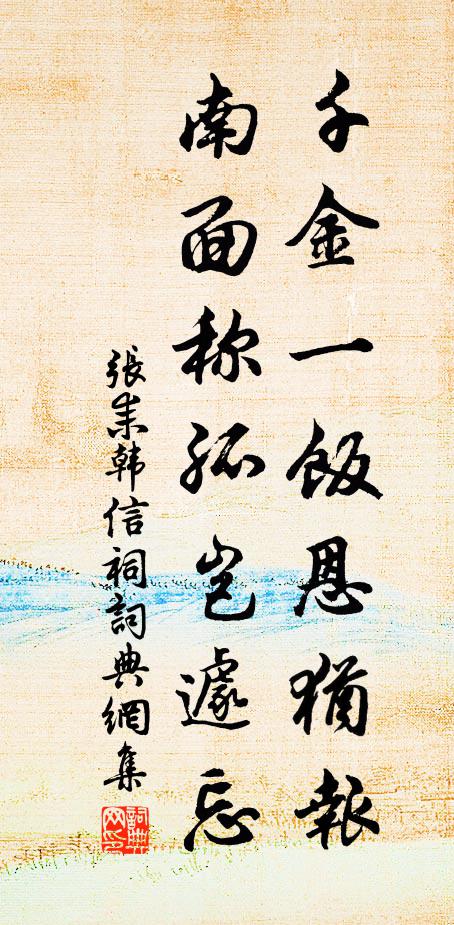 千金一飯恩猶報
南面称孤岂遽忘
張耒韩信祠詞典網集
詞典网印